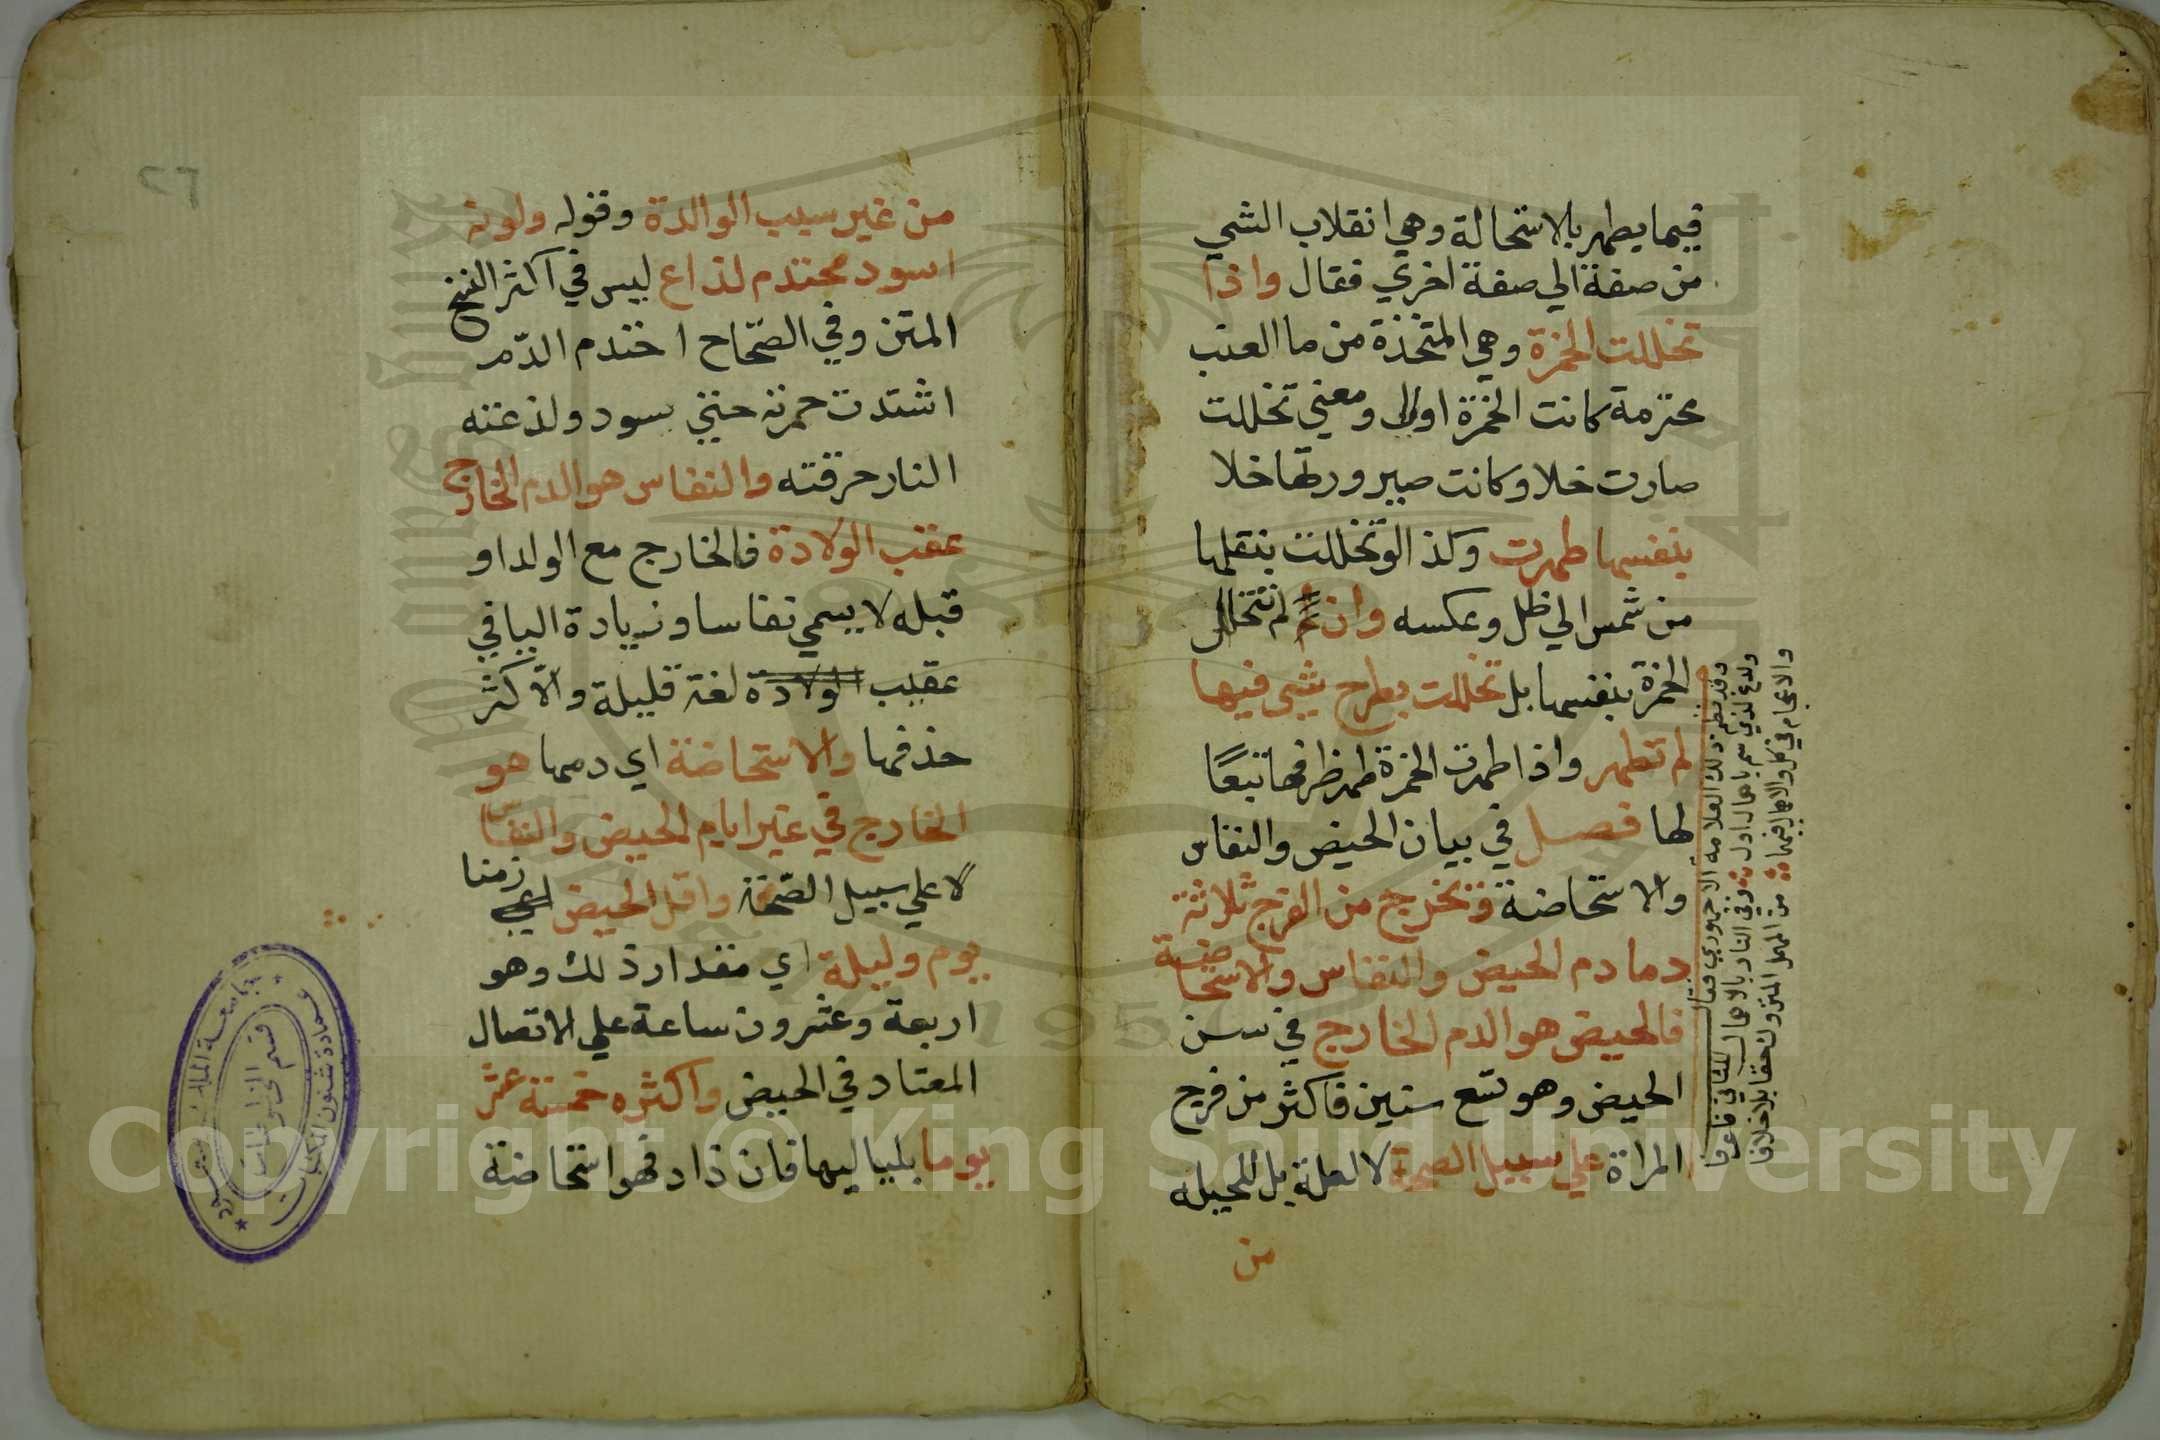 فيما يطهر بالاستحالة وهي انقلاب الشي
من صفة الي صفة اخري فقال واذا
تخللت الخمرة وهي المتخذة من ما العنب
محترمة كانت الخمرة اولا ومعني تخللت
صارت خلا وكانت صيرورتها خلا
بنفسها طهرت وكذا لو تخللت بنقلها
من شمس الي ظل وعكسه وان لم تتخلل
الخمرة بنفسها بل تخللت بطرح شي فيها
لم تطهر واذا طهرت الخمرة طهر ظرفها تبعًا
لها فصل في بيان الحيض والنفاس
والاستحاضة وتخرج من الفرج ثلاثة
دما دم الحيض والنفاس والاستحاضة
فالحيض هو الدم الخارج في سن
الحيض وهو تسع سنين فاكثر من فرج
المراة علي سبيل الصحة لا لعلة بل للجبلة
من
وقد نظم ذلك العلامة الاجهوري فقال
ولدغ لذي سم باهمال اول وفي النار بالاهمال للثاني فاعرفا
والاعجام في كل والاهمال فيهما من المهمل المتروك حقا بلا خلافا
٢٦
من غير سبب الوالدة وقوله ولونه
اسود محتدم لذاع ليس في اكثر النسخ
المتن وفي الصّحاح احتدم الدّم
اشتدت حمرته حتي يسود ولذعته
النار حرقته والنفاس هو الدم الخارج
عقب الولادة فالخارج مع الولد او
قبله لا يسمي نفاسا وزيادة اليا في
عقيب الولادة لغة قليلة والاكثر
حذفها والاستحاضة اي دمها هو
الخارج في غير ايام الحيض والنفاس
لا علي سبيل الصّحة واقل الحيض زمنا
يوم وليلة اي مقدار ذلك وهو
اربعة وعشرون ساعة علي الاتصال
المعتاد في الحيض واكثره خمسة عشر
يوما بلياليها فان زاد فهو استحاضة
جامعة الملك سعود
عمادة شئون المكتبات
قسم المخطوطات
Copyright © King Saud University
1957